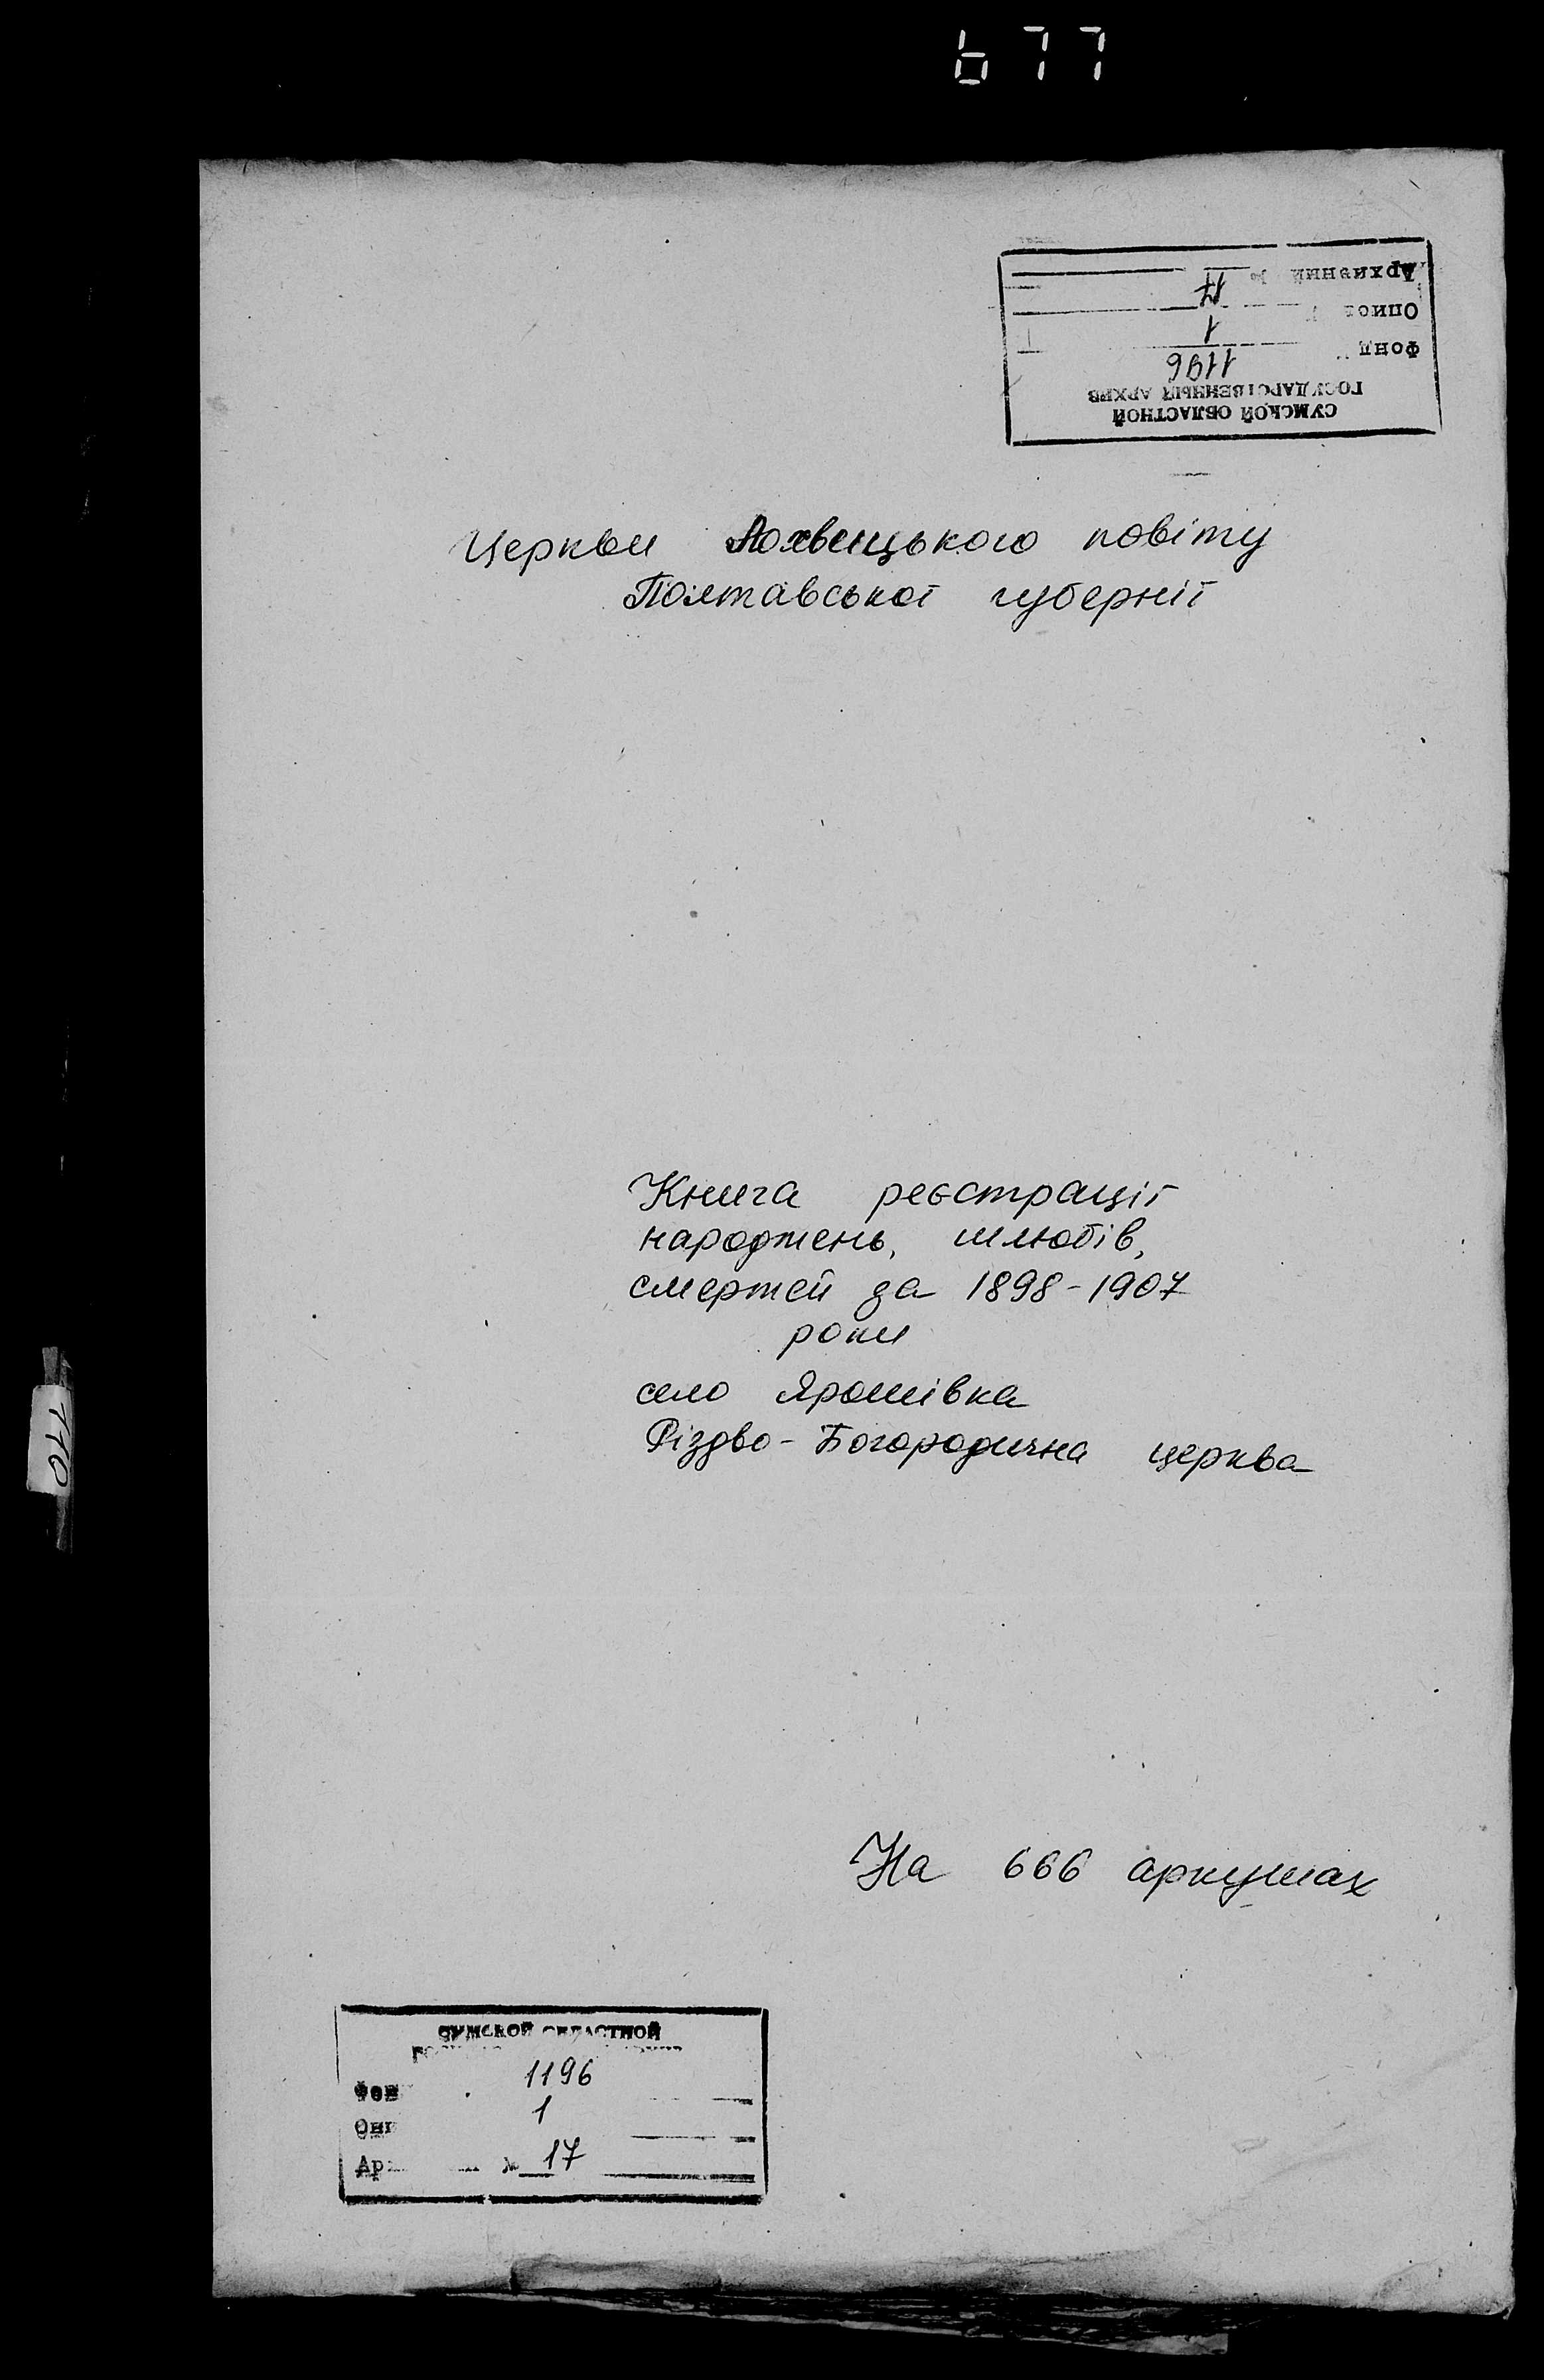 677
Архивный № 17
Опись 1
Фонд 1196
ГОСУДАРСТВЕННЫЙ АРХИВ
СУМСКОЙ ОБЛАСТНОЙ
Церкви Лохвицького повіту
Полтавської губернії
Книга реєстрації
народжень, шлюбів,
смертей за 1898-1907
роки
село Ярошівка
Різдво-Богородична церква
На 666 аркушах
СУМСКОЙ ОБЛАСТНОЙ
Фон 1196
Оп 1
Ар № 17